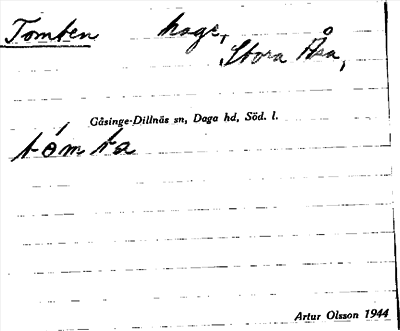 Tomten hage,
Stora Åsa,
Gåsinge-Dillnäs sn, Daga hd, Söd. l.
tómta
Artur Olsson 1944